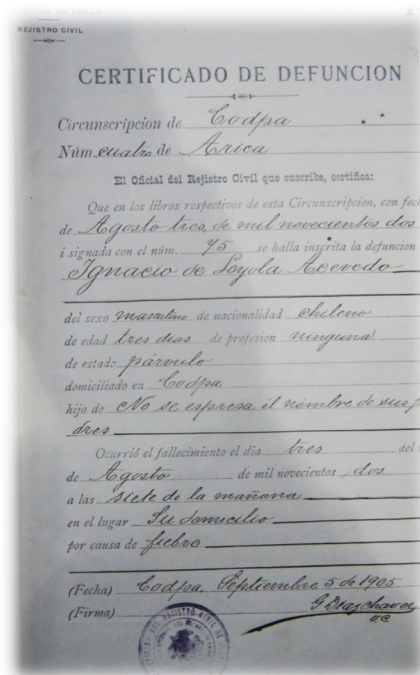 DE CHILE
REJISTRO CIVIL
CERTIFICADO DE DEFUNCION
Circunscripcion de Codpa
Núm. cuatro de Arica
El Oficial del Rejistro Civil que suscribe, certifica:
Que en los libros respectivos de esta Circunscripcion, con fech
de Agosto tres, de mil novecientos dos
i signada con el núm. 75 se halla inscrita la defuncion
Ignacio de Loyola Acevedo
del sexo masculino de nacionalidad chileno
de edad tres dias de profesion ninguna
de estado párvulo
domiciliado en Codpa
hijo de No se espresa el nombre de sus pa
dres
Ocurrió el fallecimiento el dia tres del
de Agosto de mil novecientos dos
a las siete de la mañana
en el lugar Su domicilio
por causa de fiebre
(Fecha) Codpa, Septiembre 5 de 1905
(Firma) G Diaz chavez
OC
REJISTRO CIVIL